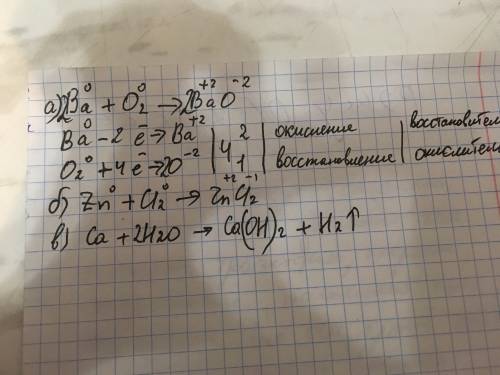 а) 2Ba⁰ + O₂⁰ → 2Ba⁺²O⁻²
Ba⁰ - 2 e̅ → Ba⁺² | 4 | 2 | окисление | восстановител
O₂⁰ + 4 e̅ → 2O⁻² | 1 | восстановление | окислител
б) Zn⁰ + Cl₂⁰ → Zn⁺²Cl₂⁻¹
в) Ca + 2H₂O → Ca(OH)₂ + H₂↑